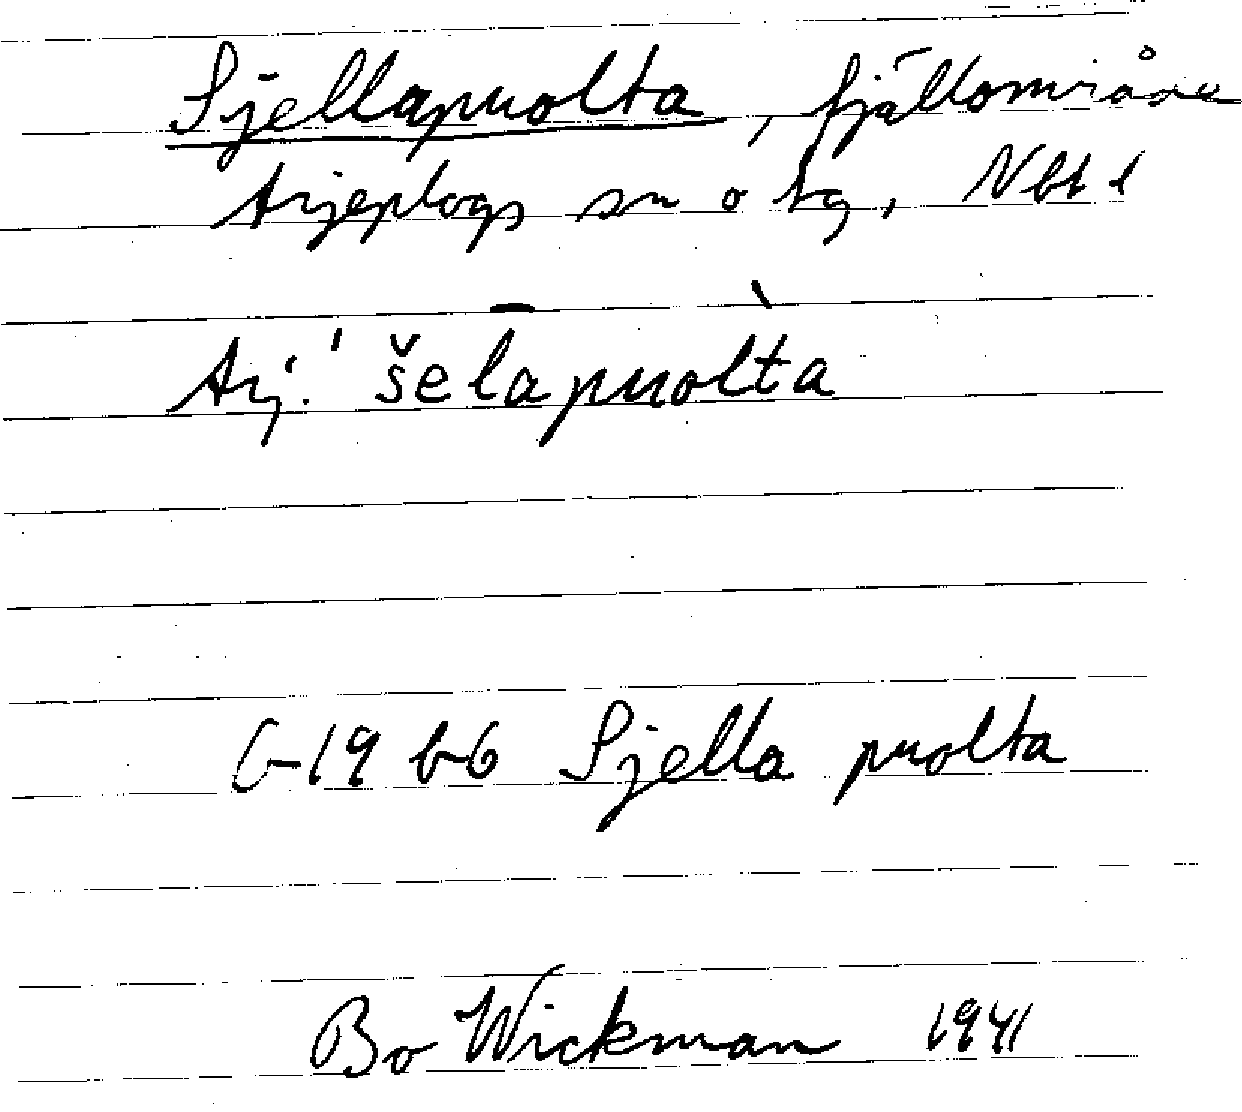 Sjellapuolta, fjällområde
Arjeplogs sn o tg, Nbt l
Arj. ˈšelāpuolˋta
G-19 b6 Sjella puolta
Bo Wickman 1941